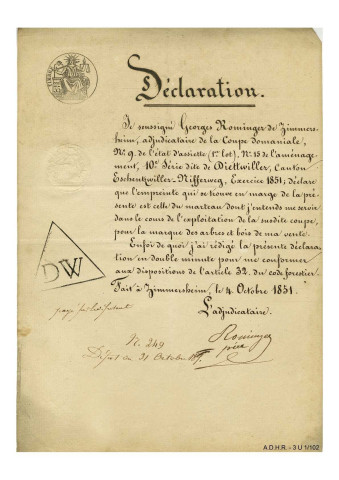 Déclaration.
Je soussigné Georges Rominger de Zimmers-
heim, adjudicataire de la Coupe domaniale,
N.º 9. de l'état d'assiette (1er lot), N.º 15 de l'aménage-
ment, 10e Série dite de Dietwiller, Canton
Eschentzwiller-Rifferweg, Exercice 1851; déclare
que l'empreinte qui se trouve en marge de la pré-
sente est celle du marteau dont j'entends me servir
dans le cours de l'exploitation de la susdite coupe,
pour la marque des arbres et bois de ma vente.
En foi de quoi j'ai rédigé la présente déclara-
tion en double minute pour me conformer
aux dispositions de l'article 32. du code forestier.
Fait à Zimmersheim, le 4. Octobre 1851.
L'adjudicataire.
DW
Rominger
N. 249
Déposé du 31 Octobre
A D H R. - 3 U 1/102